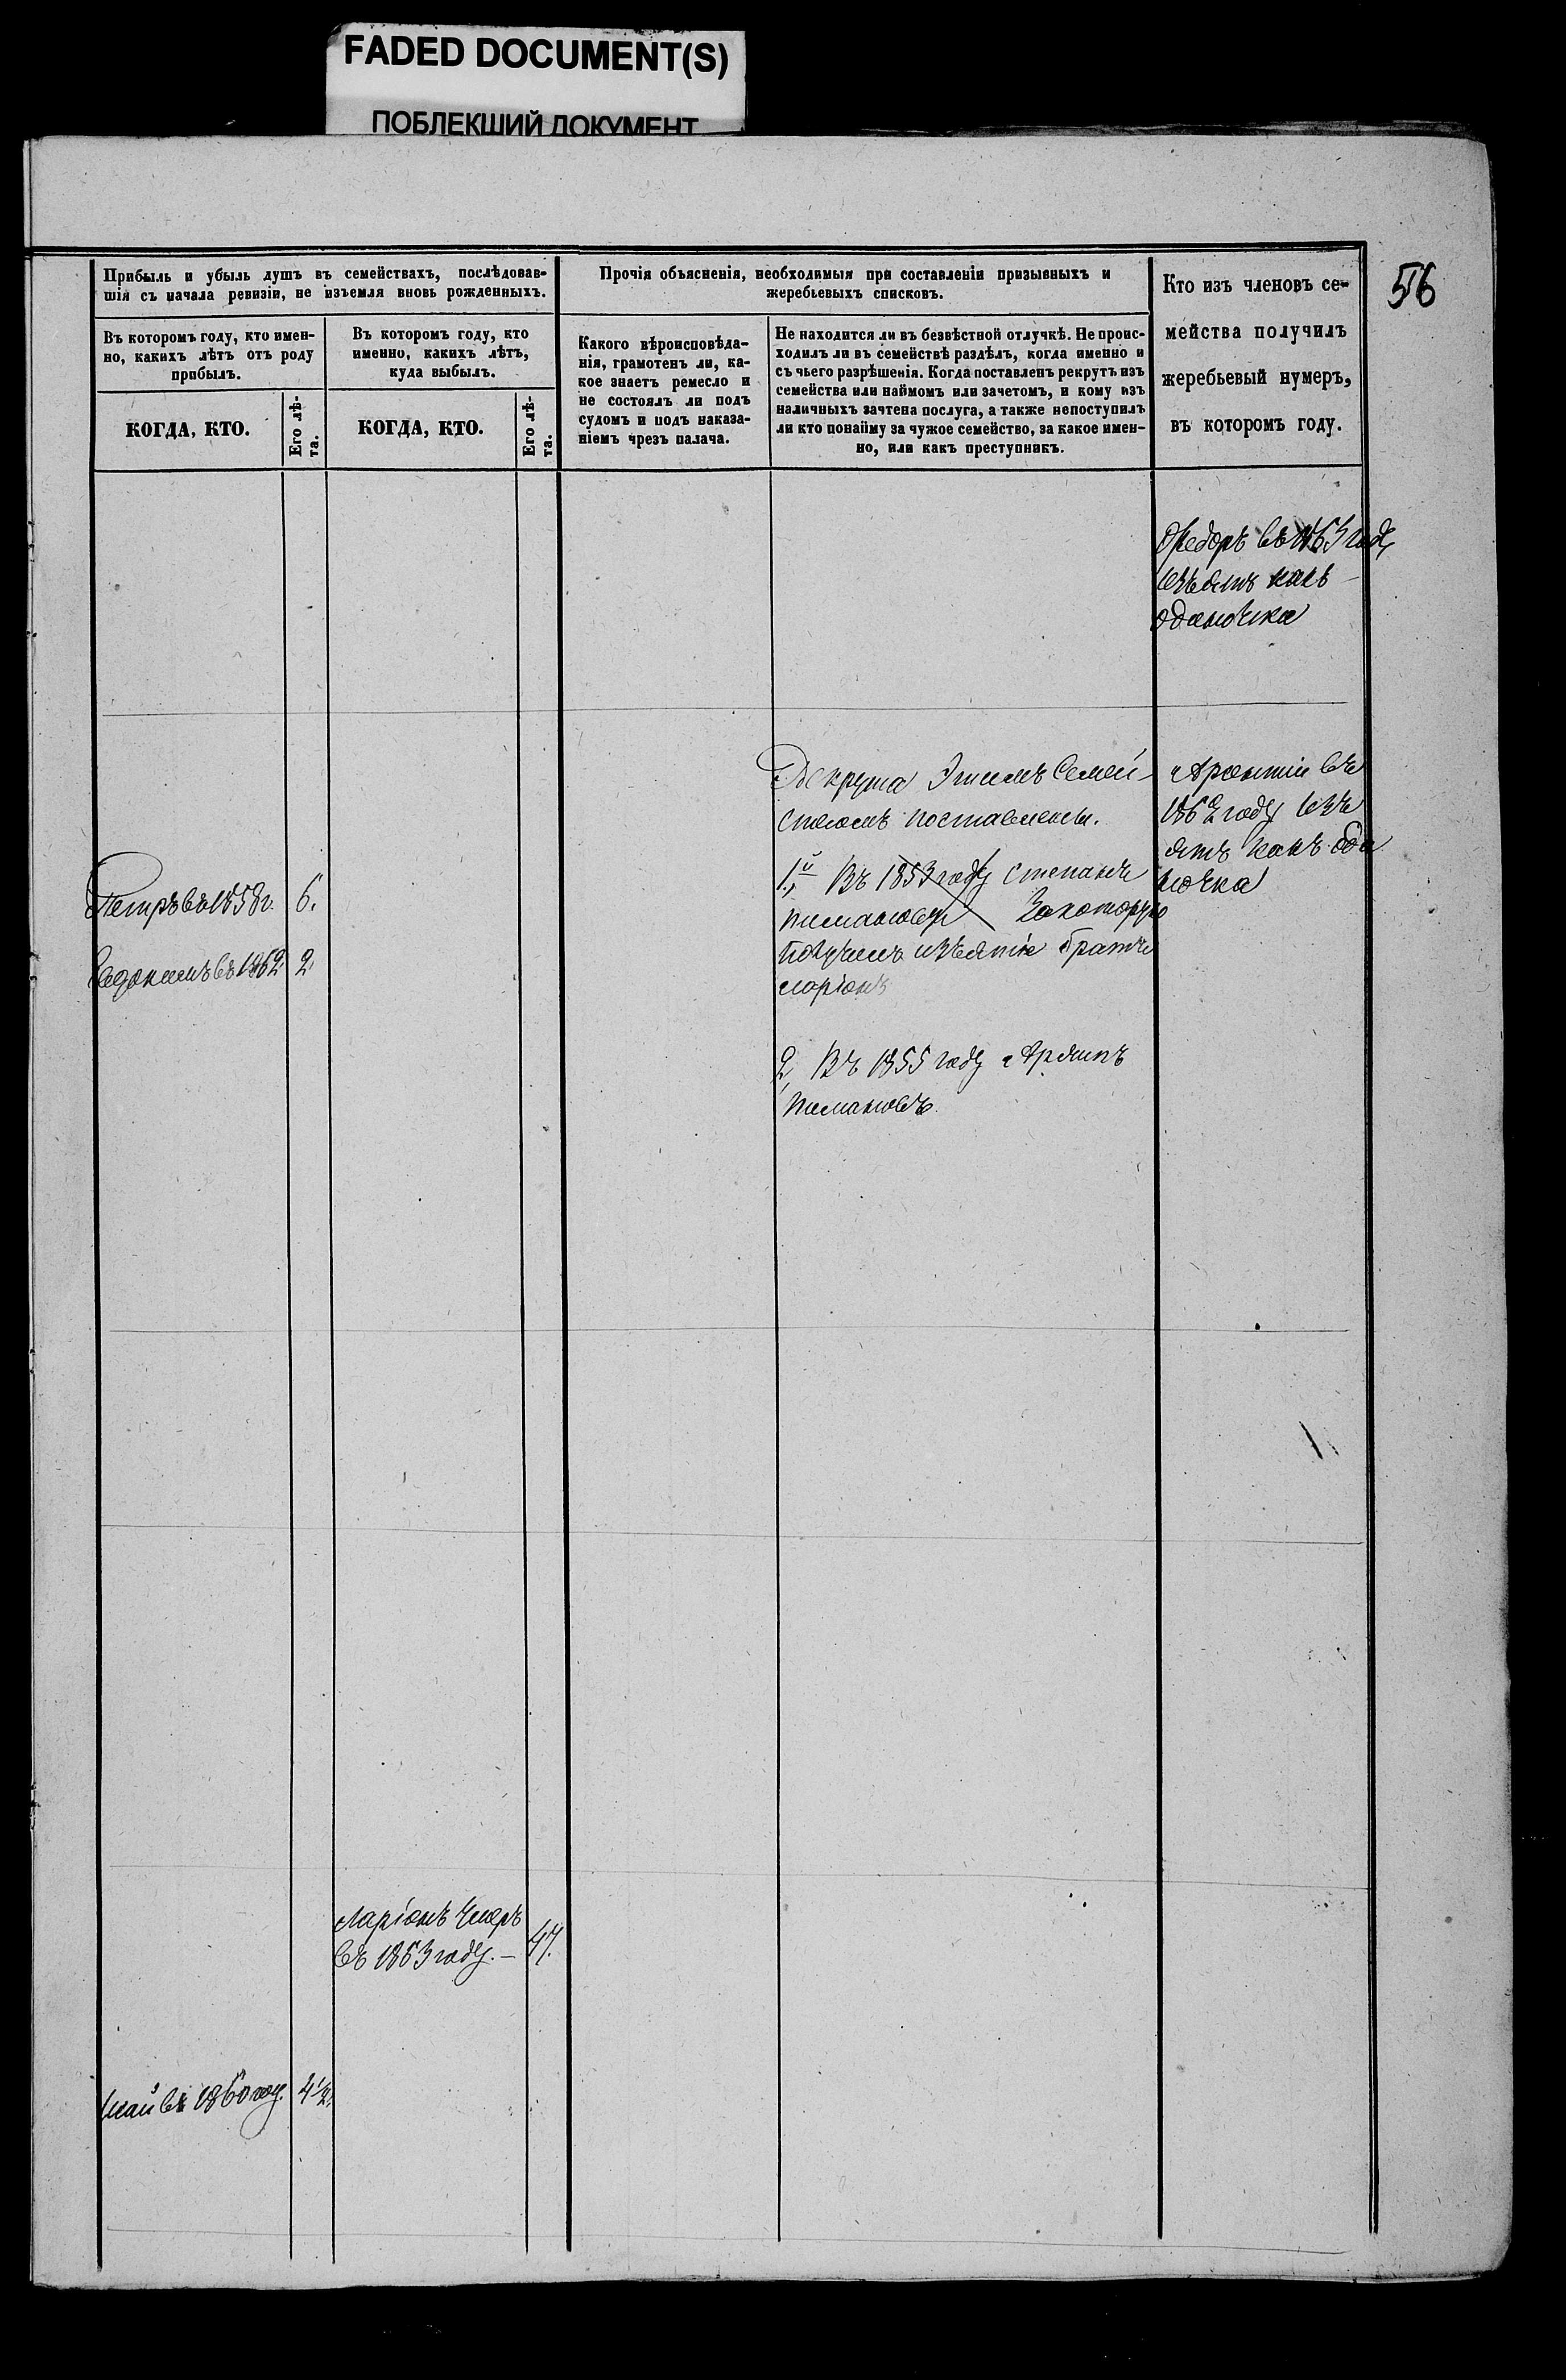 FADED DOCUMENT(S)
ПОБЛЕКШИЙ ДОКУМЕНТ
56
Прибыль и убыль душъ въ семействахъ, послѣдовав-
шія съ начала ревизіи, не изъемля вновь рожденныхъ.
Въ которомъ году, кто имен-
но, какихъ лѣтъ отъ роду
прибылъ.
КОГДА, КТО.
Его лѣ-
та.
Въ которомъ году, кто
именно, какихъ лѣтъ,
куда выбылъ.
КОГДА, КТО.
Его лѣ-
та.
Прочія объясненія, необходимыя при составленіи призывныхъ и
жеребьевыхъ списковъ.
Какого вѣроисповѣда-
нія, грамотенъ ли, ка-
кое знаетъ ремесло и
не состоялъ ли подъ
судомъ и подъ наказа-
ніемъ чрезъ палача.
Не находится ли въ безвѣстной отлучкѣ. Не проис-
ходилъ ли въ семействѣ раздѣлъ, когда именно и
съ чьего разрѣшенія. Когда поставленъ рекрутъ изъ
семейства или наймомъ или зачетомъ, и кому изъ
наличныхъ зачтена послуга, а также непоступилъ
ли кто понайму за чужое семейство, за какое имен-
но, или какъ преступникъ.
Кто изъ членовъ се-
мейства получилъ
жеребьевый нумеръ,
въ которомъ году.
Федоръ въ 1863 году
изъятъ какъ
одиночка
Рекрута Этимъ Семей-
ствомъ поставлены.
1й, Въ 1853 году Степанъ
Пимановъ Закоторую
получилъ изъятіе братъ
Ларіонъ
2, Въ 1855 году
Пимановъ.
въ
1862 году изъ
ятъ какъ оди
ночка
Петръ въ 1858 г. 6.
Евдокимъ въ 1862 2.
Ларіонъ Умеръ
въ 1863 году. — 47.
въ 1860 году. 4 1/2.